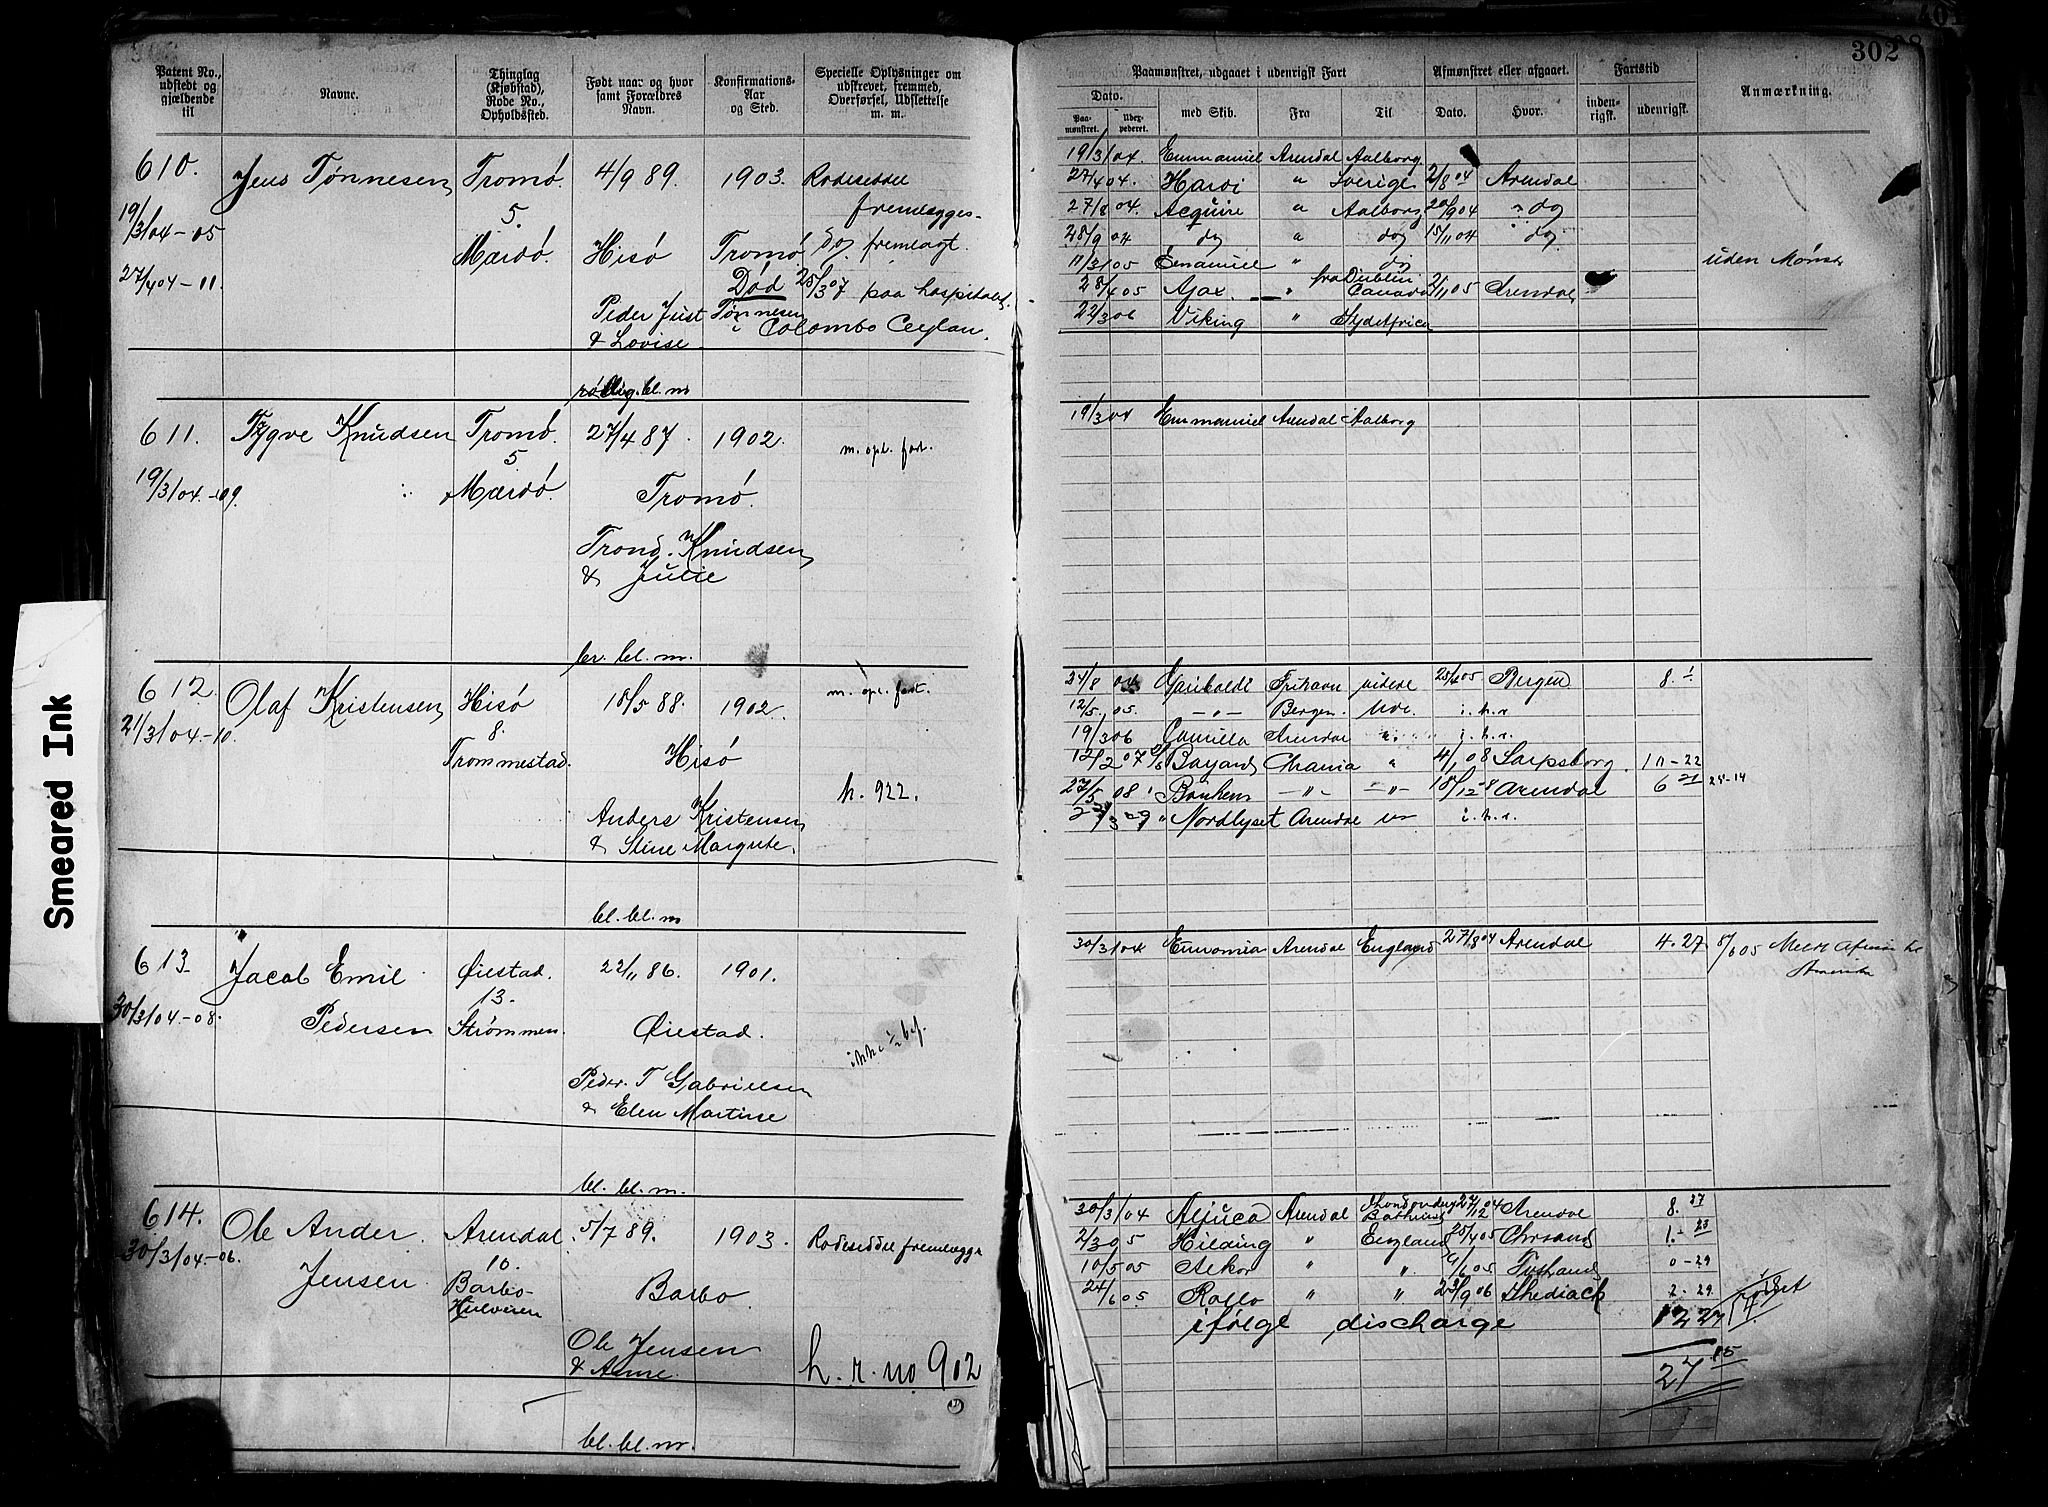 302
Patent No., udstedt og gjældende til
Navne.
Thinglag (Kjøbstad), Rode No., Opholdssted.
Født naar og hvor samt Forældres Navn.
Konfirmations-Aar og Sted.
Specielle Oplysninger om udskrevet, fremmed, Overførsel, Udslettelse m. m.
Paamønstret, udgaaet i udenrigsk Fart
Dato.
Paamønstret.
Udexpederet.
med Skib.
Fra
Til
Afmønstret eller afgaaet.
Dato.
Hvor.
Fartstid
indenrigsk.
udenrigsk.
Anmærkning.
610. Jens Tønnesen Tromø. 4/9 89. 1903. Rodeseddel
19/3 04-05 5. fremlægges.
Mærdø. Hisø Tromø Do fremlagt.
27/4 04-11 Død 25/3 07 paa hospitalet
Peder Just Tønnesen i Colombo Ceylan.
& Lovise.
bl. m
19/3 04. Emmanuel Arendal Aalborg.
27/4 04. Hardi " Sverige 2/8 04 Arendal
27/8 04. Acquire " Aalborg 20/9 04 " do
28/9 04 do " do 15/11 04 " do
11/3 05 Emanuel " do uden Mønst
28/4 05 Ajax. " fra Dublin Canada 2/11 05 Arendal
22/3 06 Viking " Sydafrica
611. Tygve Knudsen Tromø. 27/4 87. 1902. m. opl. fart.
5
19/3 04.-09. Mærdø. Tromø.
Trond. Knudsen
& Julie
br. bl. m.
19/3 04 Emmanuel Arendal Aalborg
612. Olaf Kristensen Hisø 18/5 88. 1902. m. opl. fart.
21/3 04.-10. 8.
Trommestad. Hisø
h. 922.
Anders Kristensen
& Stine Margrete.
bl. bl. m
24/8 04 Garibaldi Frihavn videre 25/4 05 Bergen 8. 1
12/5 05. -"- Bergen Ude. i. h. r
19/3 06 Camilla Arendal " i. h. r.
12/2 07 Bayard Chrania " 4/1 08 Sarpsborg. 10-22
27/5 08 -"- -"- 18/12 08 Arendal 6 21 24-14
Nordlyset Arendal i. h. r.
613. Jacob Emil Øiestad. 22/11 86. 1901.
13.
30/3 04-08. Pedersen Strømmen. Øiestad. ikke 1/2 bef.
Peder. T Gabrielsen
& Elen Martine
bl. bl. m.
30/3 04 Eunomia Arendal England 27/8 04 Arendal 4. 27 8/6 05 til
Amerika
614. Ole Ander Arendal 5/7 89. 1903. Rodeseddel fremlægge
30/3 04-06. Jensen. 10.
Barbo- Barbo.
Ole Jensen
& Anne. h. r. no 902
bl. bl. m.
30/3 04 Aljuca Arendal Londonderry Bathurst 24/12 04 Arendal 8. 27
2/3 05 Hilding " England 25/4 05 Chrsand 1. 23
10/5 05 Aekor " " 9/6 05 0-29
24/6 05 Rollo " " 23/9 06 Shediack 2. 29
ifølge discharge 12 27
27 15
Smeared Ink